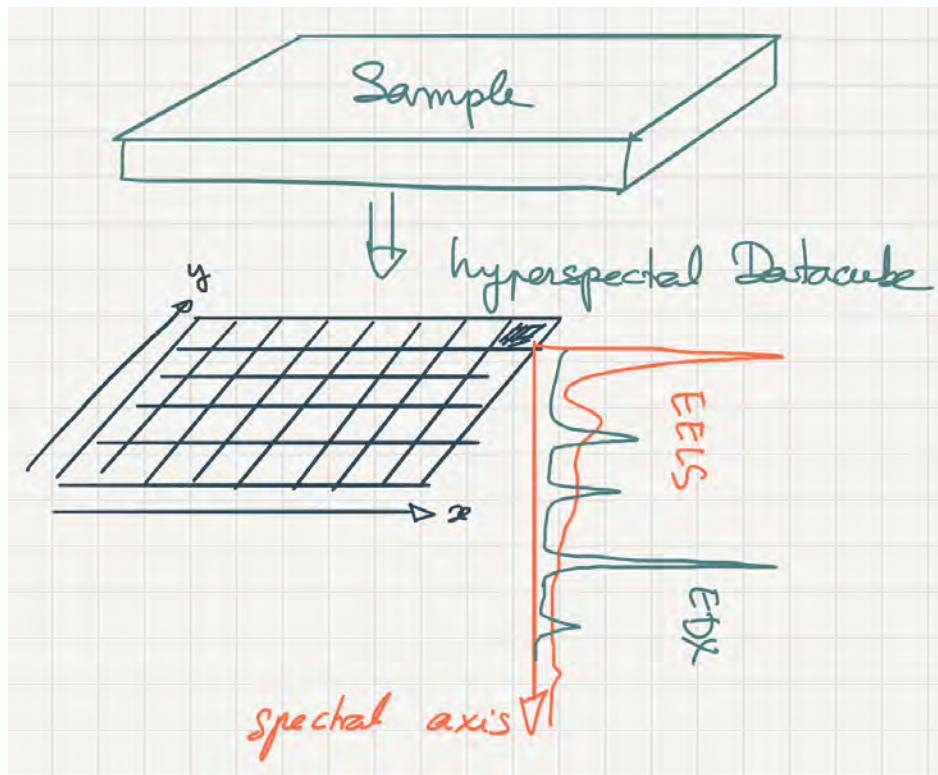 Sample
hyperspectal Datacube
y
EELS
x
EDX
spectral axis